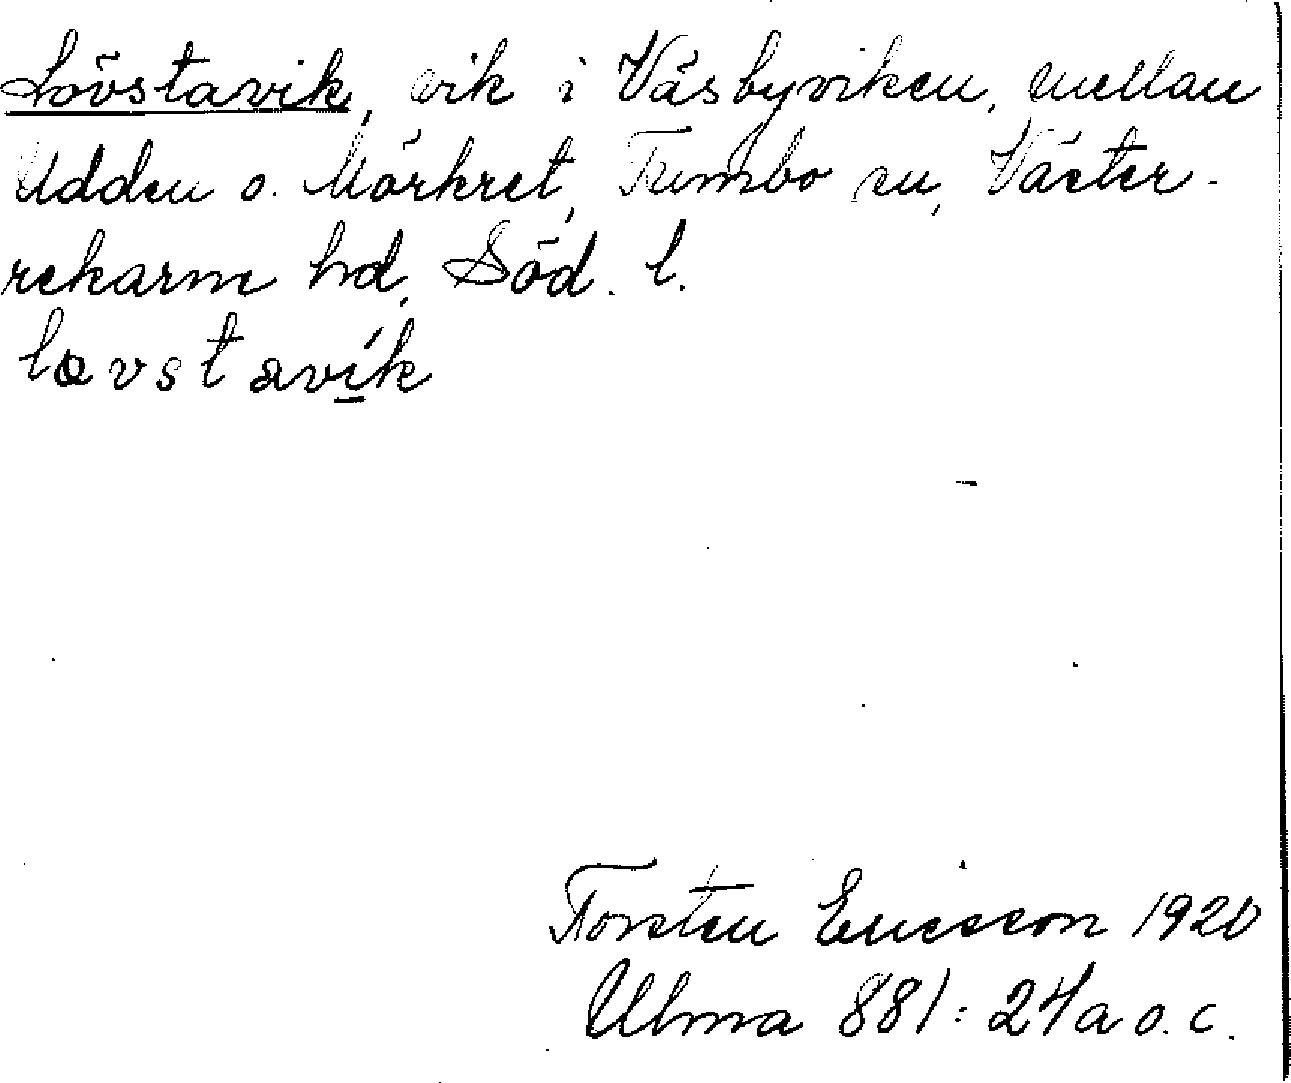 Lövstavik, vik i Väsbyviken, mellan
Udden o. Mörkret, Tumbo sn, Väster-
rekarne hd, Söd. l.
lœvstavík
Torsten Ericsson 1920
Ulma 881: 24 a o. c.